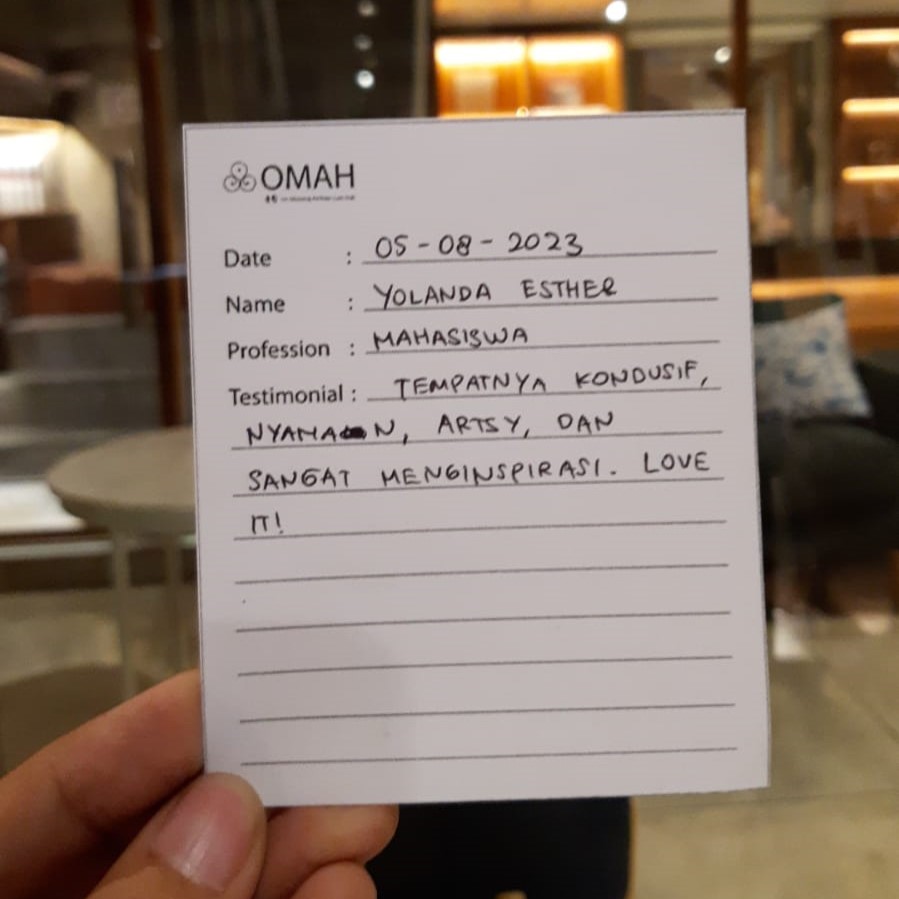 OMAH
Date : 05-08-2023
Name : YOLANDA ESTHER
Profession : MAHASISWA
Testimonial : TEMPATNYA KONDUSIF,
NYAMAN, ARTSY, DAN
SANGAT MENGINSPIRASI. LOVE
IT!